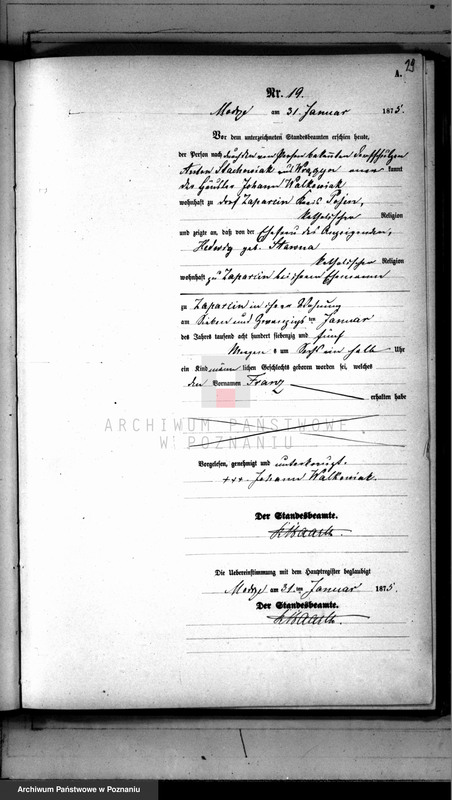 29
A.
Nr. 19.
am 31. Januar 1875.
Vor dem unterzeichneten Standesbeamten erschien heute,
der Person nach
Anton Stachowiak kannt
Johann Walkowiak
wohnhaft zu Dorf Kreis Posen,
katholischer Religion
und zeigte an, daß von der Ehefrau des Anzeigenden,
Hedwig geb.
katholischer Religion
wohnhaft zu bei ihrem Ehemanne
zu in ihrer Wohnung
am Sieben und Zwanzigsten Januar
des Jahres tausend acht hundert siebenzig und fünf
Morgens um halb Uhr
ein Kind männlichen Geschlechts geboren worden sei, welches
den Vornamen Franz
erhalten habe
ARCHIWUM PAŃSTWOWE
W POZNANIU
Vorgelesen, genehmigt und
+++ Johann Walkowiak.
Der Standesbeamte.
Die Uebereinstimmung mit dem Hauptregister beglaubigt
am 31. ten Januar 1875.
Der Standesbeamte.
Archiwum Państwowe w Poznaniu